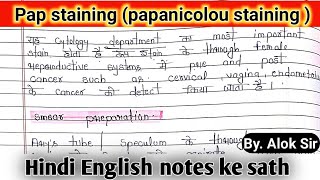 Pap staining (papanicolou staining )
यह Cytology department का most important
stain होता है इस stain के through female
Reproductive systems में pre and post
cancer such as : cervical, vagina, endometrial
के cancer को detect किया जाता है।
Smear preparation:
Ayre's tube | Speculum के through
By. Alok Sir
Hindi English notes ke sath